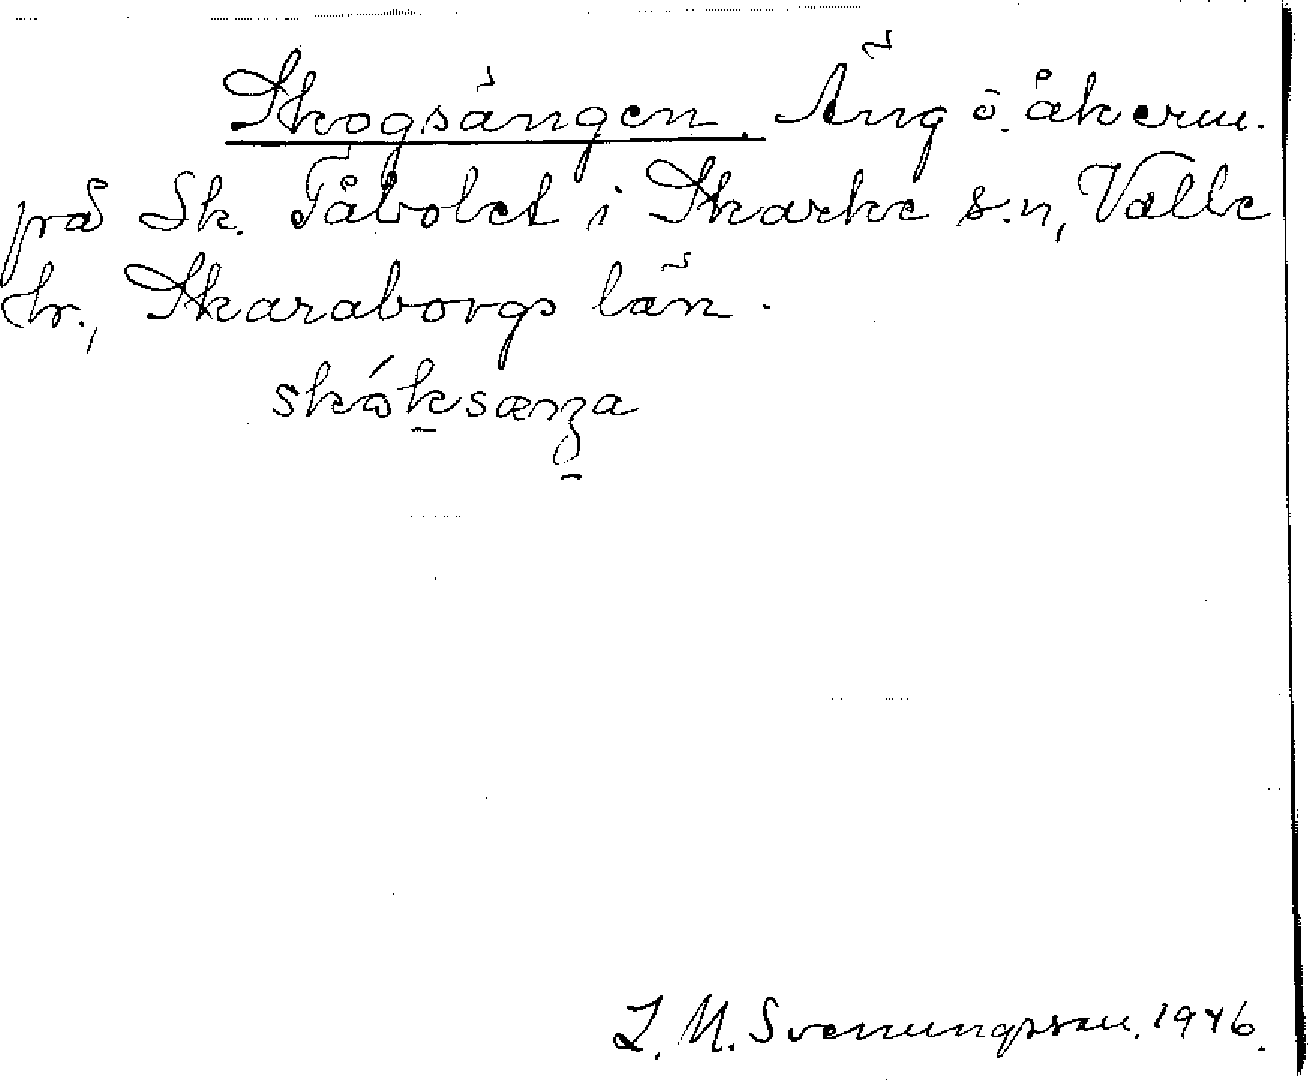 Skogsängen. Äng ö. åkerm.
på Sk. Fåbolet i Skarke s:n, Valle
hr., Skaraborgs län.
L. M. Svenungsson. 1946.